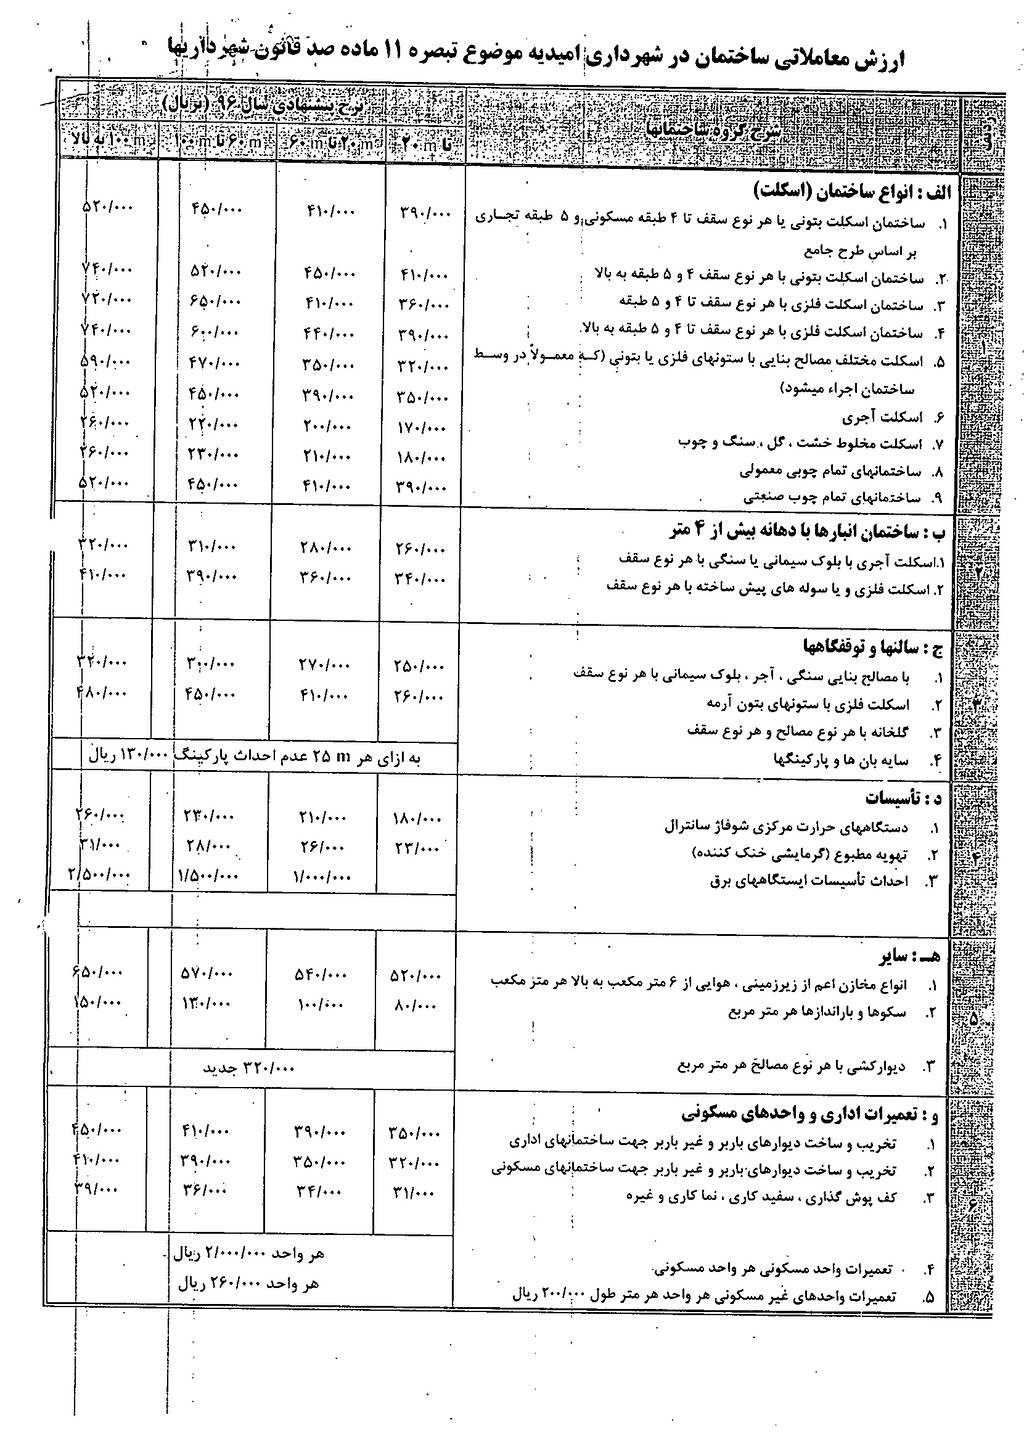 ارزش معاملاتی ساختمان در شهرداری امیدیه موضوع تبصره ۱۱ ماده صد قانون شهرداریها
ردیف
شرح گروه ساختمانها
نرخ پیشنهادی سال ۹۶ (بریال)
تا ۲۰m
۲۰m تا ۶۰m
۶۰ تا ۱۰۰m
۱۰۰m به بالا
۱
الف : انواع ساختمان (اسکلت)
۱. ساختمان اسکلت بتونی یا هر نوع سقف تا ۴ طبقه مسکونی و ۵ طبقه تجـاری ۳۹۰/۰۰۰ ۴۱۰/۰۰۰ ۴۵۰/۰۰۰ ۵۲۰/۰۰۰
بر اساس طرح جامع
۲. ساختمان اسکلت بتونی با هر نوع سقف ۴ و ۵ طبقه به بالا ۴۱۰/۰۰۰ ۴۵۰/۰۰۰ ۵۲۰/۰۰۰ ۷۴۰/۰۰۰
۳. ساختمان اسکلت فلزی با هر نوع سقف تا ۴ و ۵ طبقه ۳۶۰/۰۰۰ ۴۱۰/۰۰۰ ۶۵۰/۰۰۰ ۷۲۰/۰۰۰
۴. ساختمان اسکلت فلزی با هر نوع سقف تا ۴ و ۵ طبقه به بالا. ۳۹۰/۰۰۰ ۴۴۰/۰۰۰ ۶۰۰/۰۰۰ ۷۴۰/۰۰۰
۵. اسکلت مختلف مصالح بنایی با ستونهای فلزی یا بتونی (کـه معمـولاً در وسـط ۳۲۰/۰۰۰ ۳۵۰/۰۰۰ ۴۷۰/۰۰۰ ۵۹۰/۰۰۰
ساختمان اجراء میشود) ۳۵۰/۰۰۰ ۳۹۰/۰۰۰ ۴۵۰/۰۰۰ ۵۲۰/۰۰۰
۶. اسکلت آجری ۱۷۰/۰۰۰ ۲۰۰/۰۰۰ ۲۲۰/۰۰۰ ۲۶۰/۰۰۰
۷. اسکلت مخلوط خشت ، گل ، سنگ و چوب ۱۸۰/۰۰۰ ۲۱۰/۰۰۰ ۲۳۰/۰۰۰ ۲۶۰/۰۰۰
۸. ساختمانهای تمام چوبی معمولی ۳۹۰/۰۰۰ ۴۱۰/۰۰۰ ۴۵۰/۰۰۰ ۵۲۰/۰۰۰
۹. ساختمانهای تمام چوب صنعتی
۲
ب : ساختمان انبارها با دهانه بیش از ۴ متر
۱.اسکلت آجری با بلوک سیمانی یا سنگی با هر نوع سقف ۲۶۰/۰۰۰ ۲۸۰/۰۰۰ ۳۱۰/۰۰۰ ۳۲۰/۰۰۰
۲. اسکلت فلزی و یا سوله های پیش ساخته با هر نوع سقف ۳۴۰/۰۰۰ ۳۶۰/۰۰۰ ۳۹۰/۰۰۰ ۴۱۰/۰۰۰
۳
ج : سالنها و توقفگاهها
۱. با مصالح بنایی سنگی ، آجر ، بلوک سیمانی با هر نوع سقف ۲۵۰/۰۰۰ ۲۷۰/۰۰۰ ۳۰۰/۰۰۰ ۳۲۰/۰۰۰
۲. اسکلت فلزی با ستونهای بتون آرمه ۲۶۰/۰۰۰ ۴۱۰/۰۰۰ ۴۵۰/۰۰۰ ۴۸۰/۰۰۰
۳. گلخانه با هر نوع مصالح و هر نوع سقف
۴. سایه بان ها و پارکینگها به ازای هر ۲۵ m عدم احداث پارکینگ ۱۳۰/۰۰۰ ریال
۴
د : تأسیسات
۱. دستگاههای حرارت مرکزی شوفاژ سانترال ۱۸۰/۰۰۰ ۲۱۰/۰۰۰ ۲۳۰/۰۰۰ ۲۶۰/۰۰۰
۲. تهویه مطبوع (گرمایشی خنک کننده) ۲۳/۰۰۰ ۲۶/۰۰۰ ۲۸/۰۰۰ ۳۱/۰۰۰
۳. احداث تأسیسات ایستگاههای برق ۱/۰۰۰/۰۰۰ ۱/۵۰۰/۰۰۰ ۲/۵۰۰/۰۰۰
۵
هـ : سایر
۱. انواع مخازن اعم از زیرزمینی ، هوایی از ۶ متر مکعب به بالا هر متر مکعب ۵۲۰/۰۰۰ ۵۴۰/۰۰۰ ۵۷۰/۰۰۰ ۶۵۰/۰۰۰
۲. سکوها و باراندازها هر متر مربع ۸۰/۰۰۰ ۱۰۰/۰۰۰ ۱۳۰/۰۰۰ ۱۵۰/۰۰۰
۳. دیوارکشی با هر نوع مصالح هر متر مربع ۳۲۰/۰۰۰ جدید
۶
و : تعمیرات اداری و واحدهای مسکونی
۱. تخریب و ساخت دیوارهای باربر و غیر باربر جهت ساختمانهای اداری ۳۵۰/۰۰۰ ۳۹۰/۰۰۰ ۴۱۰/۰۰۰ ۴۵۰/۰۰۰
۲. تخریب و ساخت دیوارهای باربر و غیر باربر جهت ساختمانهای مسکونی ۳۲۰/۰۰۰ ۳۵۰/۰۰۰ ۳۹۰/۰۰۰ ۴۱۰/۰۰۰
۳. کف پوش گذاری ، سفید کاری ، نما کاری و غیره ۳۱/۰۰۰ ۳۴/۰۰۰ ۳۶/۰۰۰ ۳۹/۰۰۰
۴. تعمیرات واحد مسکونی هر واحد مسکونی. هر واحد ۲/۰۰۰/۰۰۰ ریال
۵. تعمیرات واحدهای غیر مسکونی هر واحد هر متر طول ۲۰۰/۰۰۰ ریال هر واحد ۲۶۰/۰۰۰ ریال